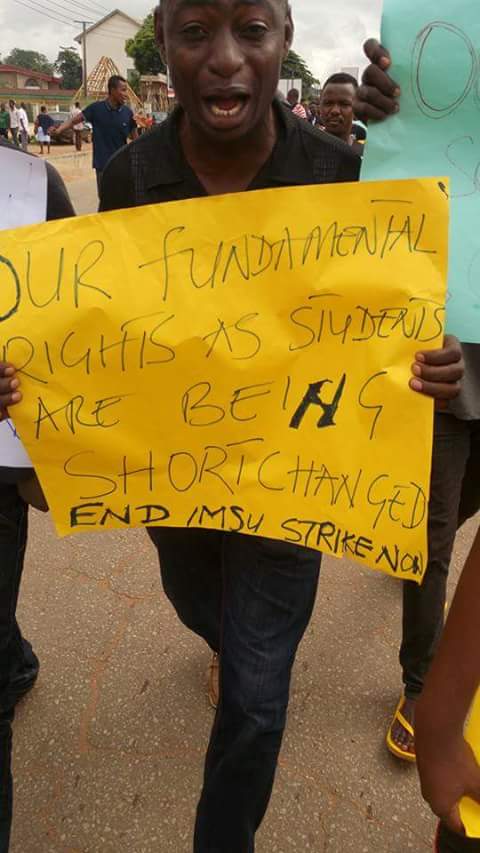 OUR FUNDAMENTAL
RIGHTS AS STUDENTS
ARE BEING
SHORTCHANGED
END IMSU STRIKE NOW